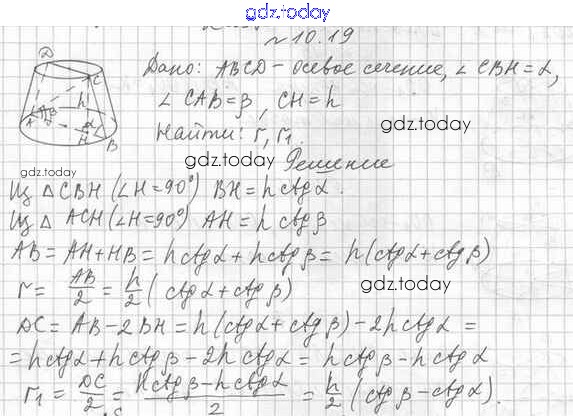 gdz.today
№10.19
Дано: ABCD - осевое сечение, ∠CBH=α,
∠CAB=β, CH=h
gdz.today
Найти: r, r₁
gdz.today
Решение
Из △CBH (∠H=90°) BH=h ctgα.
Из △ACH (∠H=90°) AH=h ctgβ
AB = AH+HB = h ctgα + h ctgβ = h(ctgα+ctgβ)
gdz.today
r = AB/2 = h/2 (ctgα+ctgβ)
DC = AB-2BH = h(ctgα+ctgβ)-2h ctgα =
= h ctgα + h ctgβ - 2h ctgα = h ctgβ - h ctgα
r₁ = DC/2 = (h ctgβ - h ctgα)/2 = h/2 (ctgβ - ctgα).
D
C
h
β
α
A
H
B